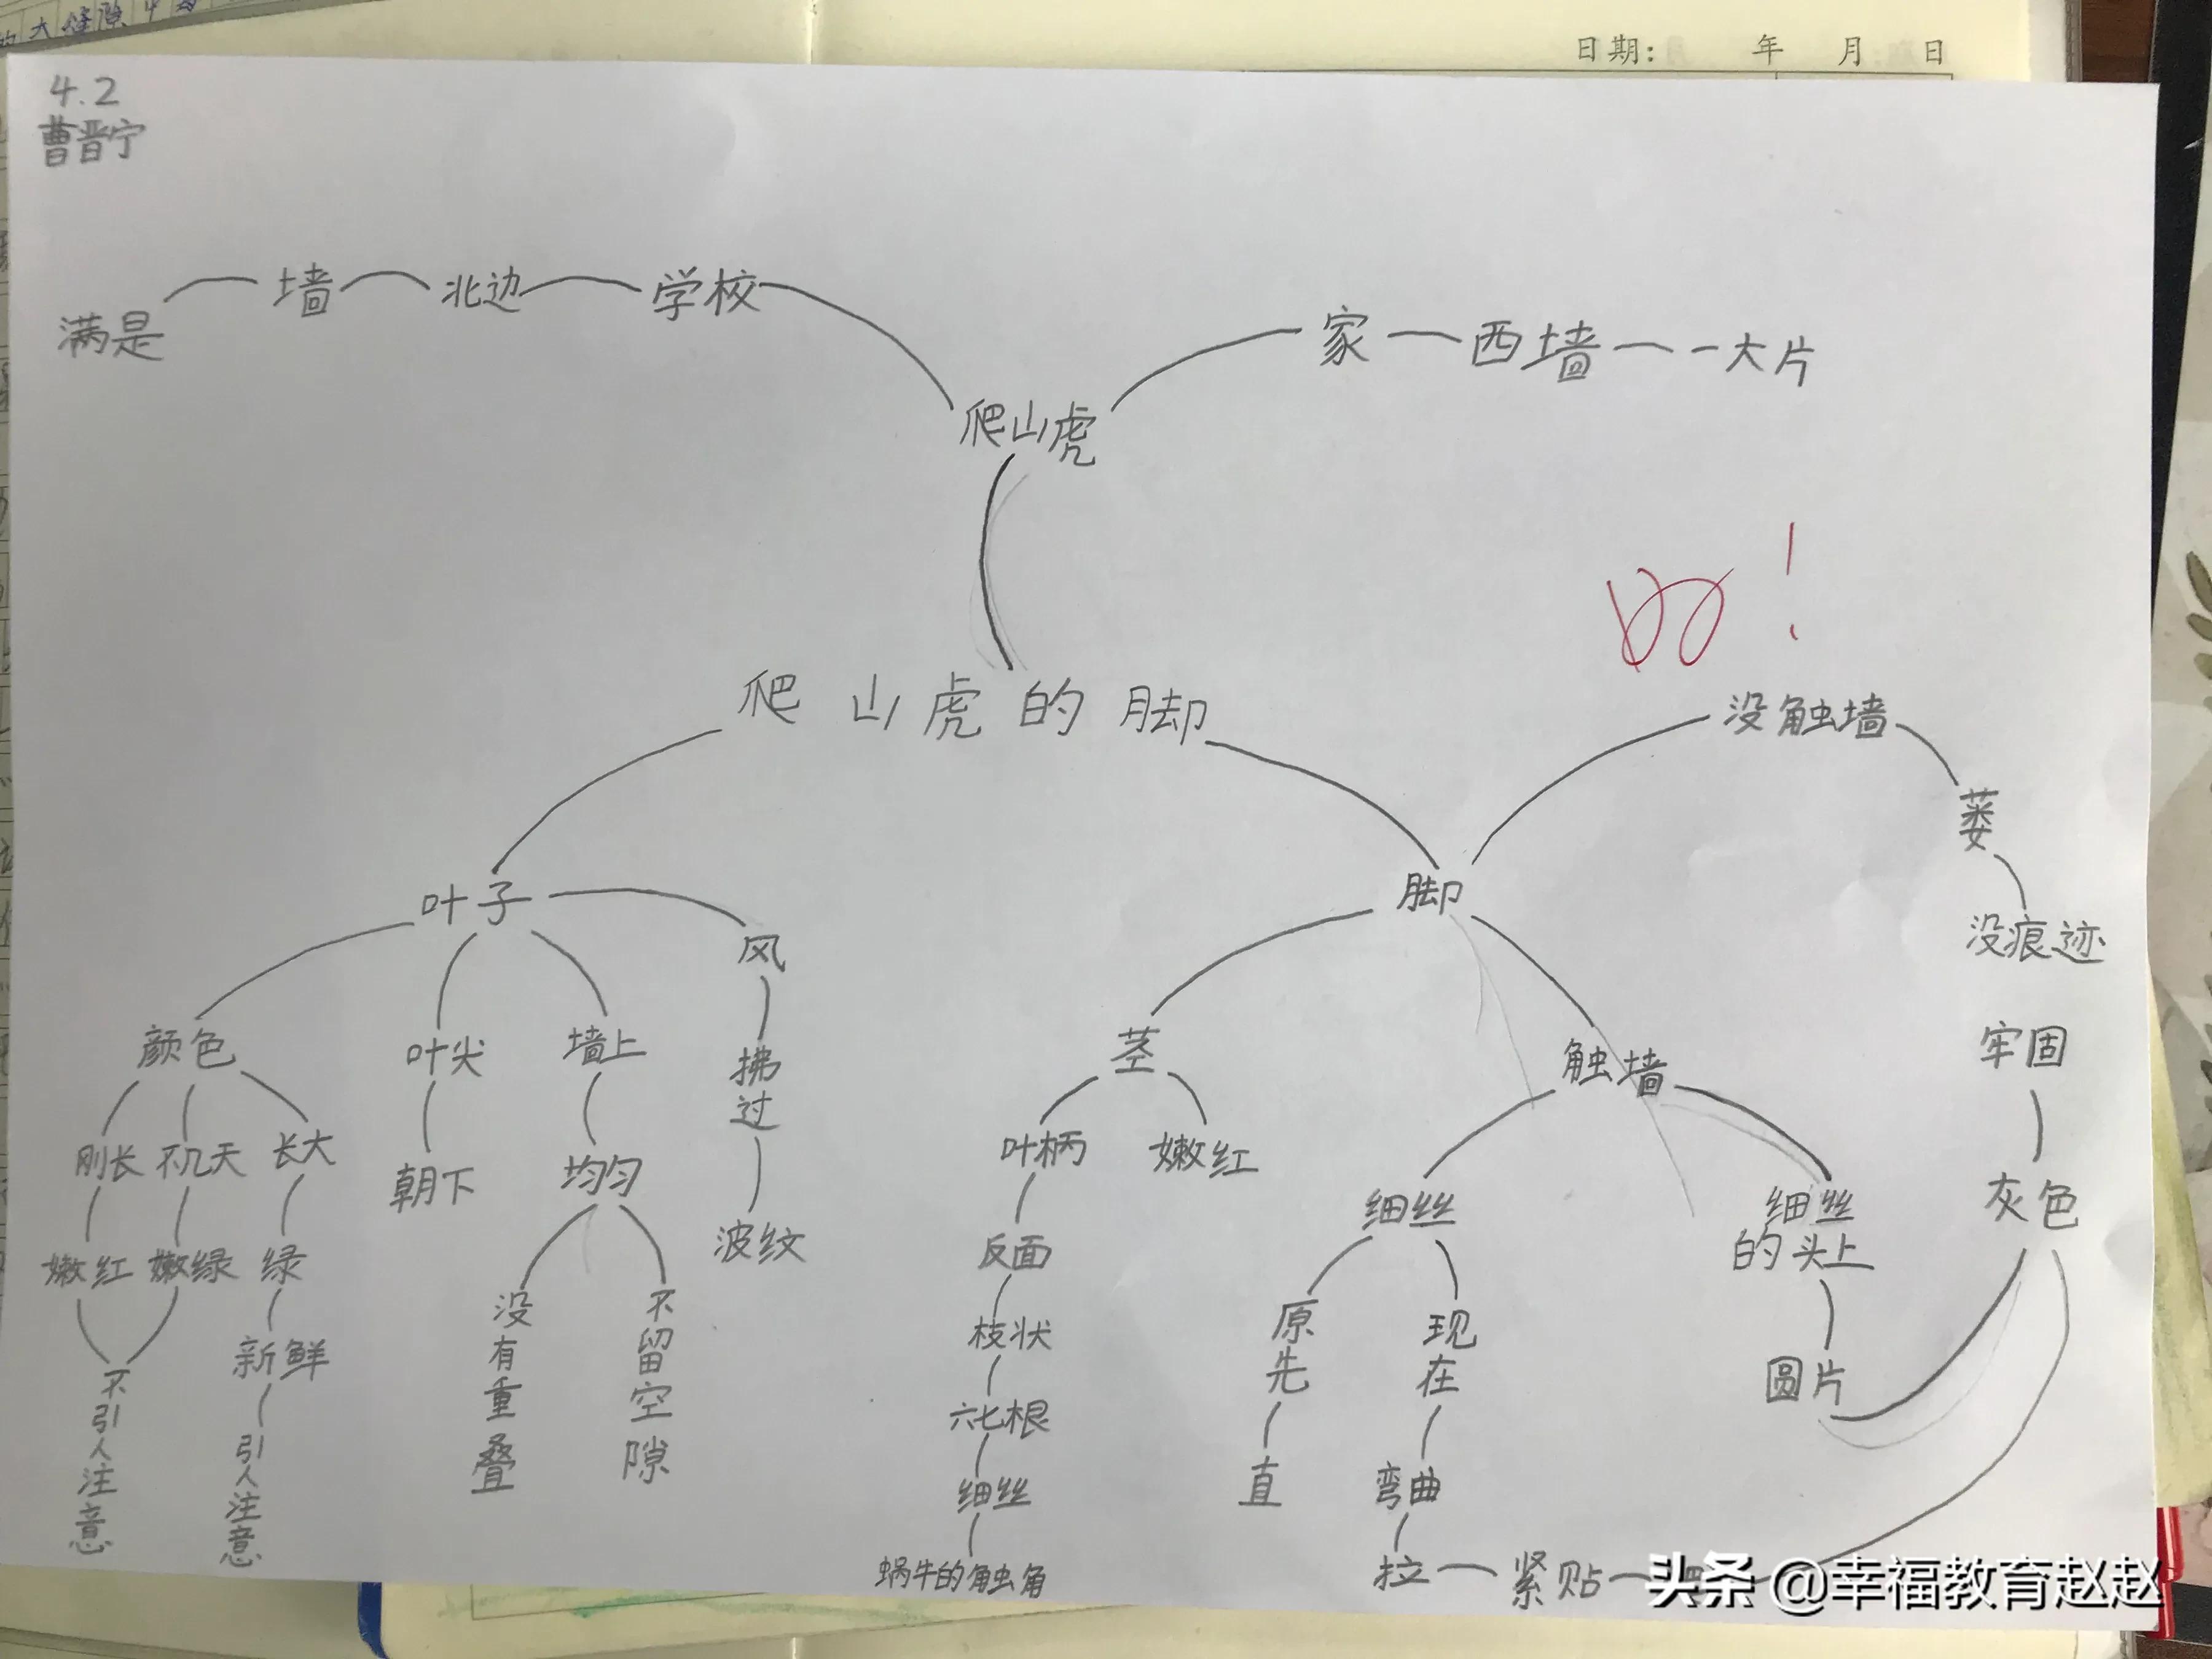 的大缝隙中
日期: 年 月 日
4.2
曹晋宁
满是 墙 北边 学校
家 西墙 一大片
爬山虎
好!
爬山虎的脚
没触墙
萎
没痕迹
叶子
脚
风
颜色
叶尖
墙上
拂过
茎
触墙
牢固
刚长 不几天 长大
朝下
均匀
波纹
叶柄
嫩红
细丝
细丝
的头上
灰色
嫩红 嫩绿 绿
反面
新鲜
没有重叠
不留空隙
枝状
原先
现在
圆片
不引人注意
引人注意
六七根
细丝
直
弯曲
蜗牛的触角
拉 紧贴
头条 @幸福教育赵赵